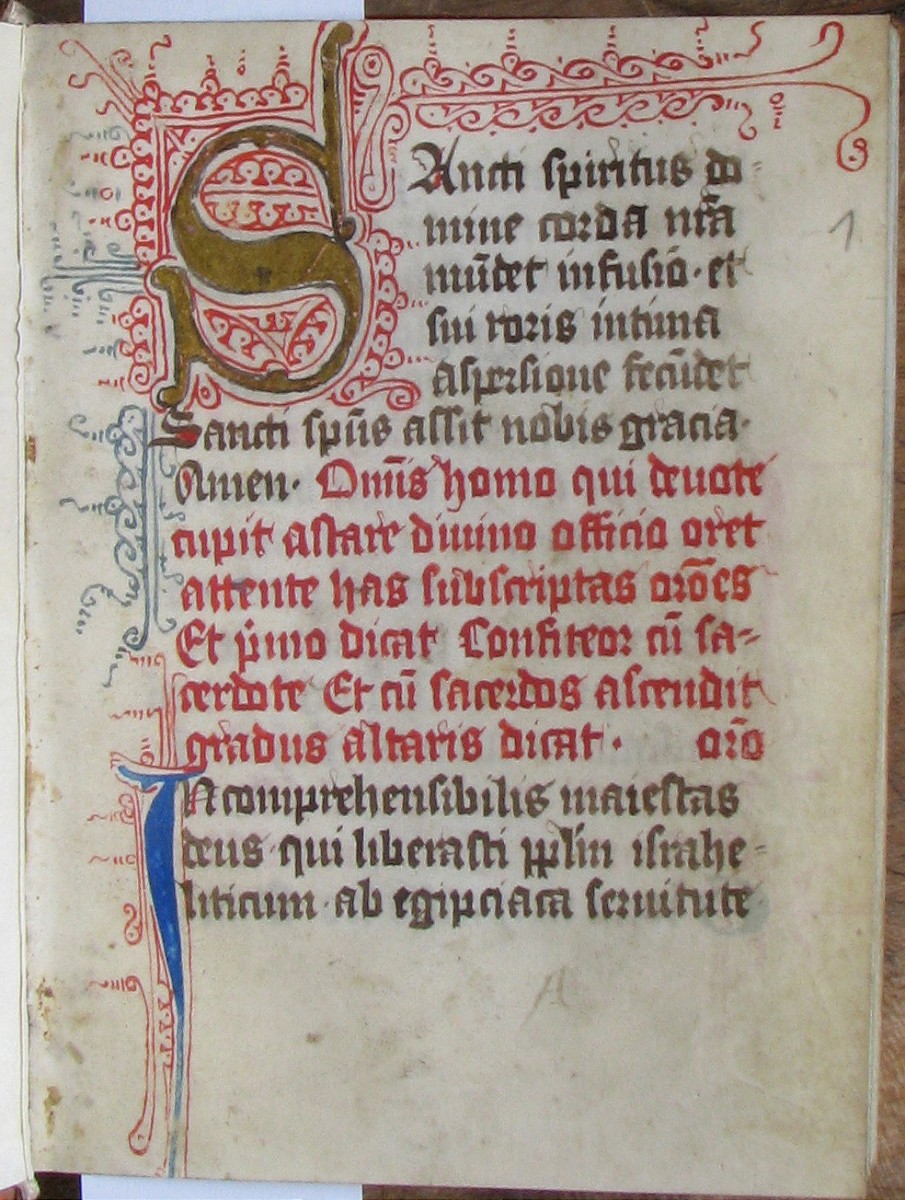 SAncti spiritus do-
mine corda nr̃a
mũdet infusio · et
sui roris intima
aspersione fecũdet
Sancti sp̃us assit nobis gracia ·
Amen · Om̃is homo qui deuote
cupit astare diuino officio oret
attente has subscriptas orões
Et p̃mo dicat Confiteor cũ sa-
cerdote Et cũ sacerdos ascendit
gradus altaris dicat · orõ
INcomprehensibilis maiestas
deus · qui liberasti pp̃lm israhe-
liticum · ab egipciaca seruitute
1
A